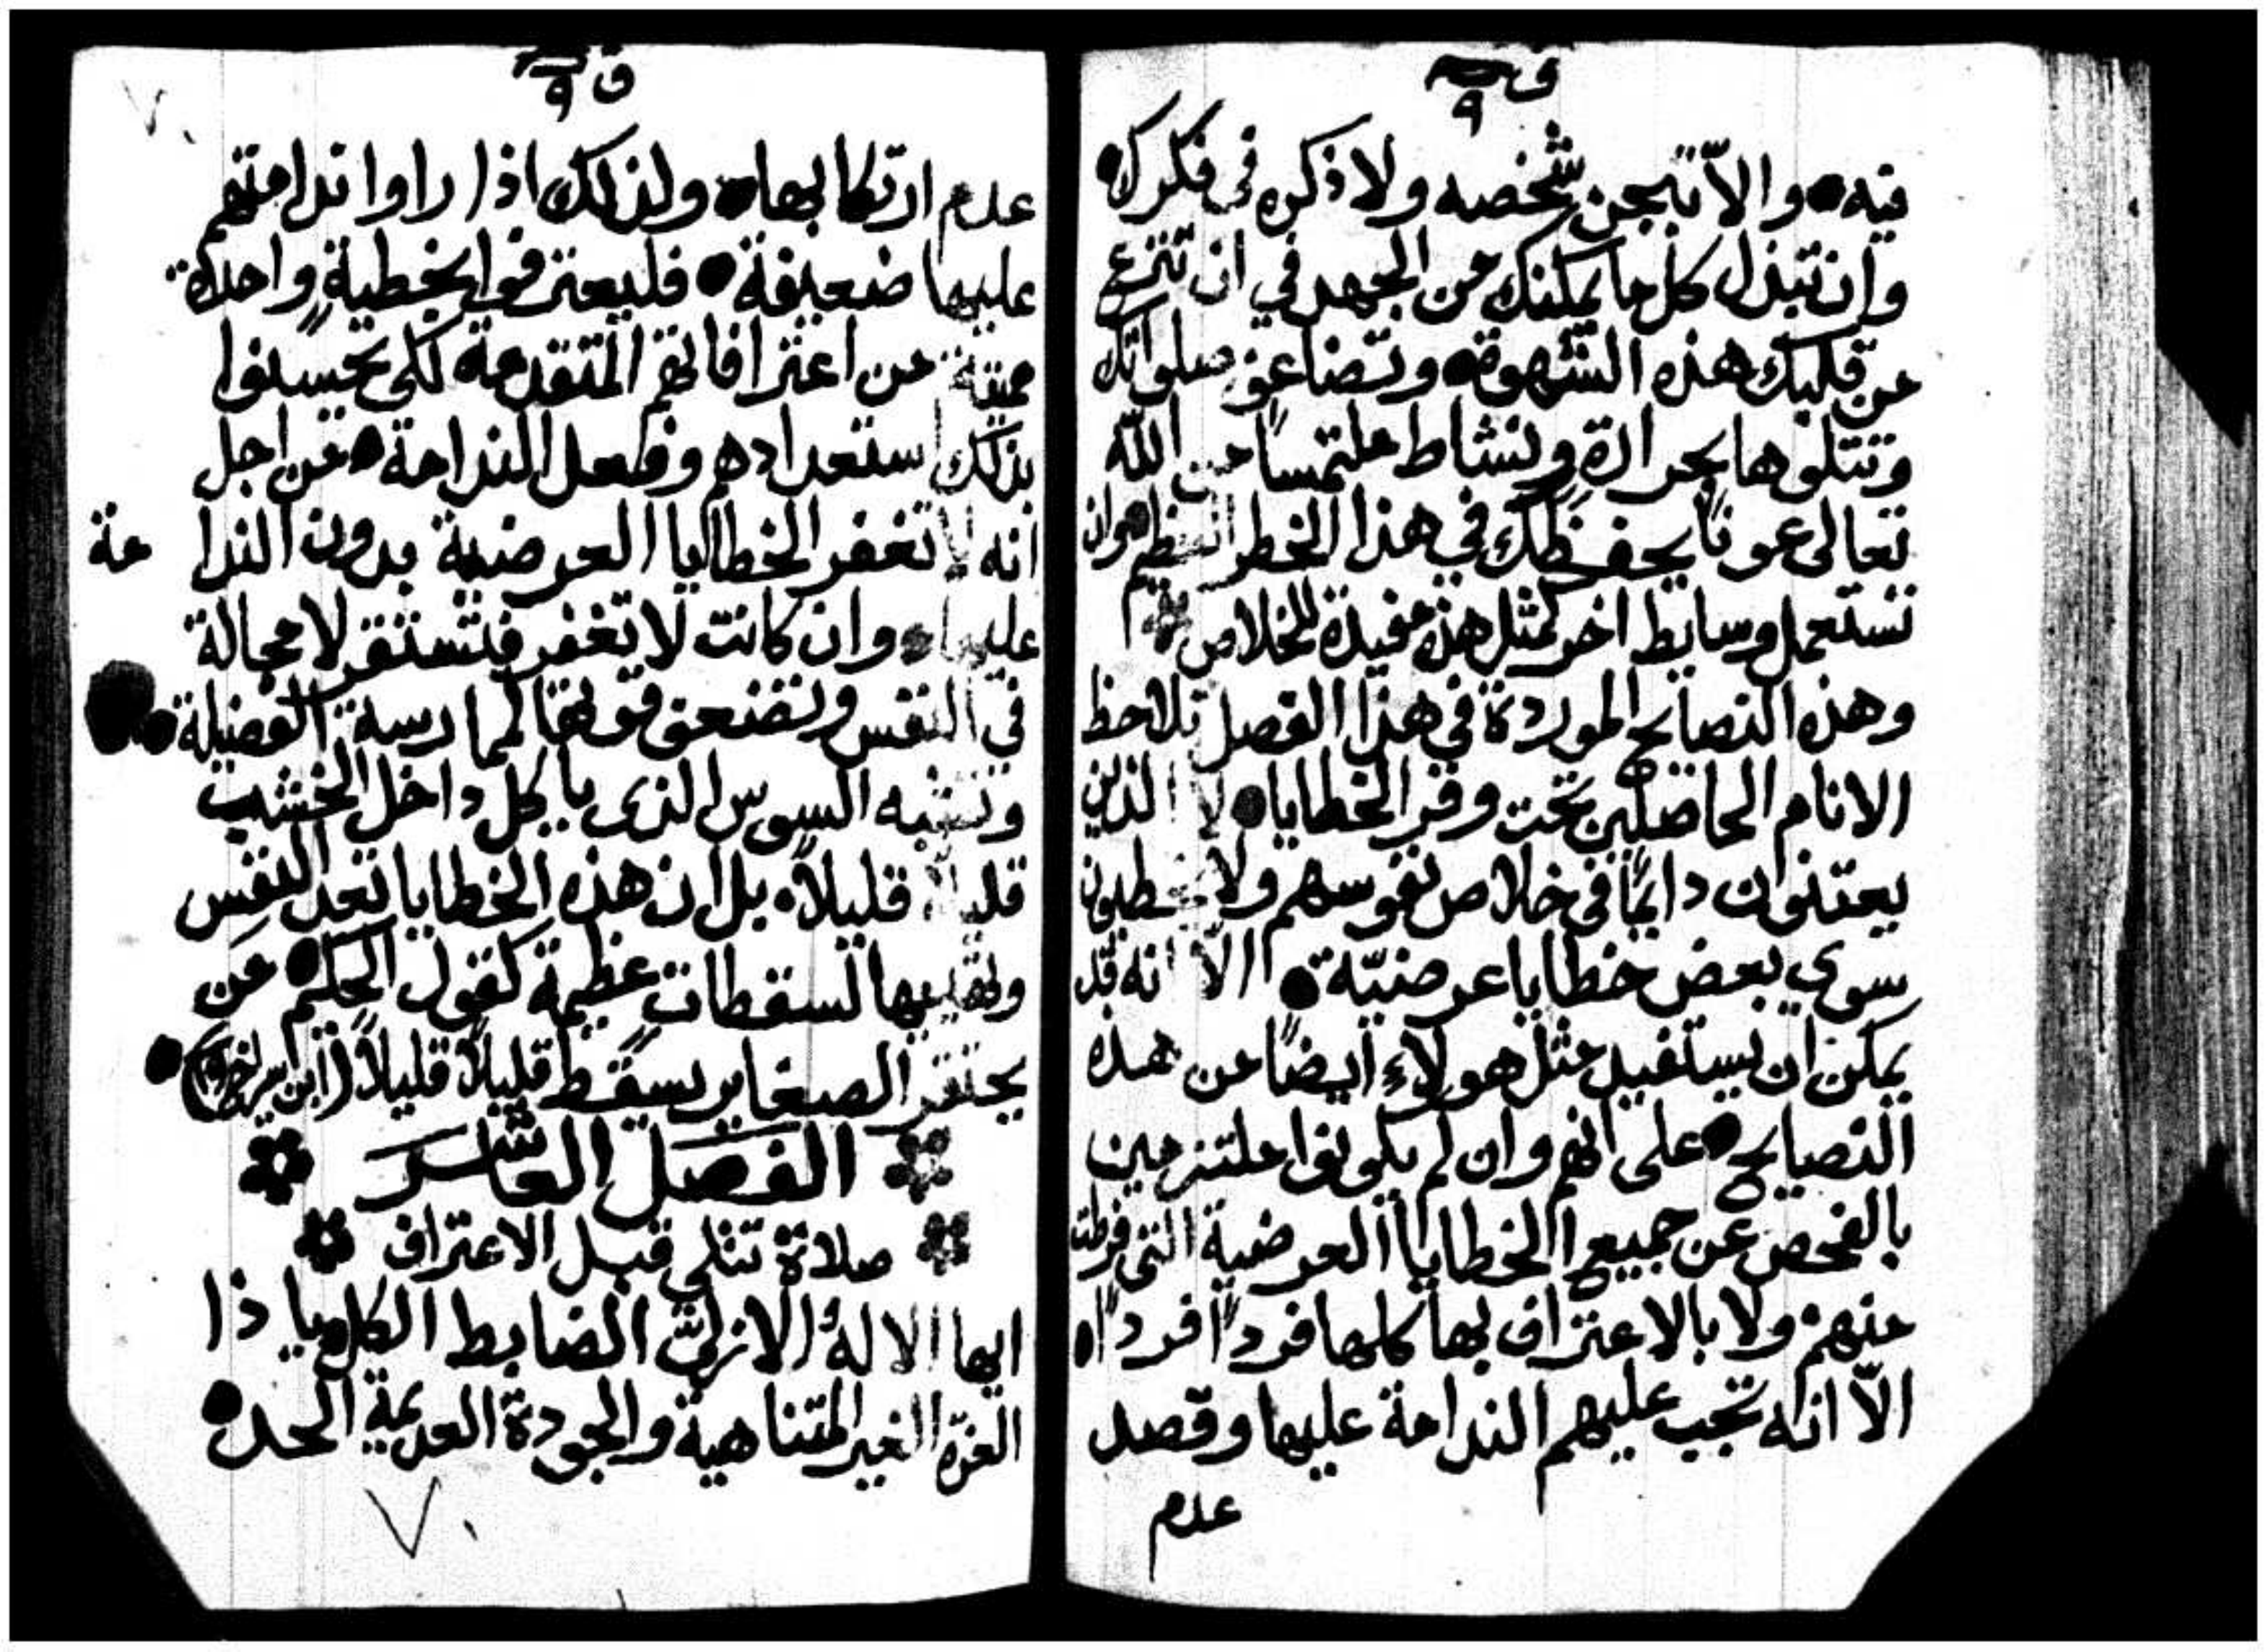 ق ٩
فيه والّا تبجن شخصه ولا ذكره في فكرك
وان تبذل كل ما يمكنك من الجهد في ان تنزع
من قلبك هذه الشهوة وتضاعف صلواتك
وتتلوها بحرارةٍ ونشاط ملتمساً من الله
تعالى عوناً يحفظك في هذا الخطر العظيم وان
تستعمل وسايط اخر لمثل هذه مفيدة للخلاص
وهذه النصايح الموردة في هذا الفصل تلاحظ
الانام الحاصلين تحت وقر الخطايا لا الذين
يعتنون دايماً في خلاص نفوسهم ولا يخطيون
سوى بعض خطايا عرضيّة الّا انه قد
يمكن ان يستفيد مثل هولاء ايضاً من هذه
النصايح على انهم وان لم يكونوا ملتزمين
بالفحص عن جميع الخطايا العرضية التي فرطت
منهم ولا بالاعتراف بها كلها فرداً فرداً
الّا انه تجب عليهم الندامة عليها وقصد
عدم
ق ٩
٧٠
عدم ارتكابها ولذلك اذا راوا ندامتهم
عليها ضعيفة فليعترفوا بخطيةٍ واحدة
مميتة من اعترافاتهم المتقدمة لكي يحسنوا
بذلك استعدادهم وفعل الندامة من اجل
انه لا تغفر الخطايا العرضية بدون الندامة
عليها وان كانت لا تغفر فتستقر لا محالة
في النفس وتضعف قوتها لممارسة الفضيلة
وتشبه السوس الذى ياكل داخل الخشب
قليلاً قليلاً بل ان هذه الخطايا تعد النفس
وتهيها لسقطات عظيمة كقول الحكيم من
يحتقر الصغاير يسقط قليلاً قليلاً (ابن سيراخ ١٩)
الفصل العاشر
صلاة تتلى قبل الاعتراف
ايها الاله الازليّ الضابط الكل يا ذا
العزة الغير المتناهية والجودة العديمة الحد
٧٠